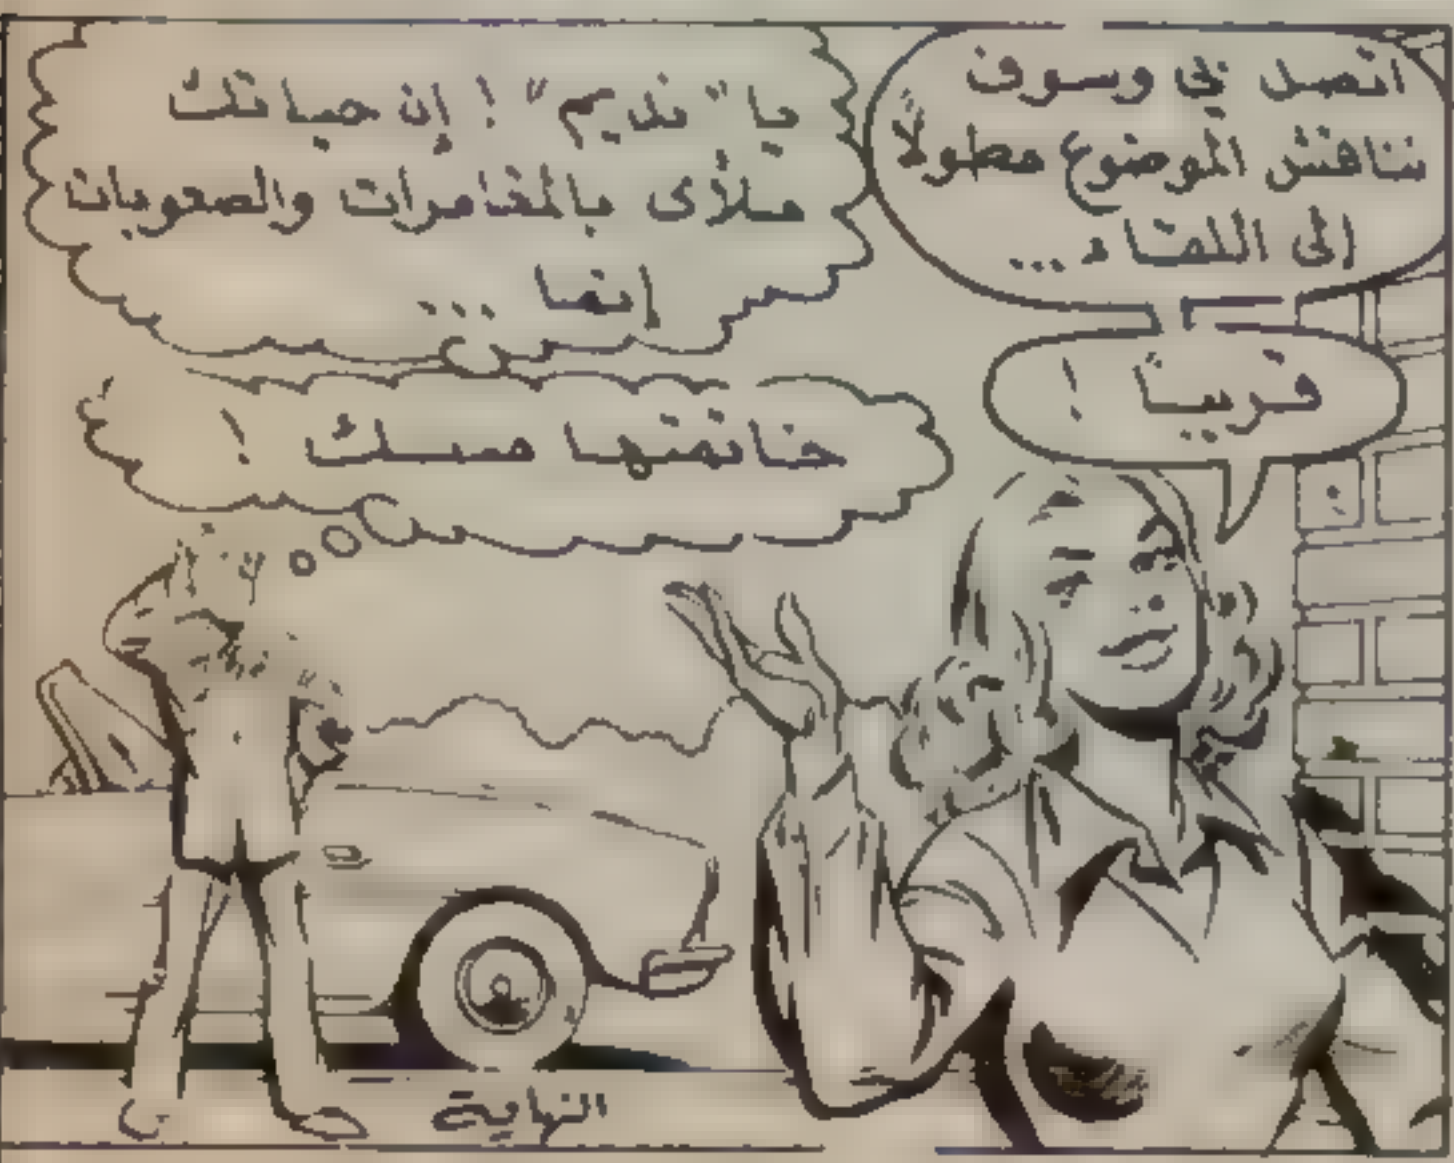 اتصل بي وسوف
نناقش الموضوع مطولاً
الى اللقاء...
قريباً !
يا "نديم" ! إن حياتك
ملأى بالمغامرات والصعوبات
إنما ...
خاتمتها مسك !
النهاية